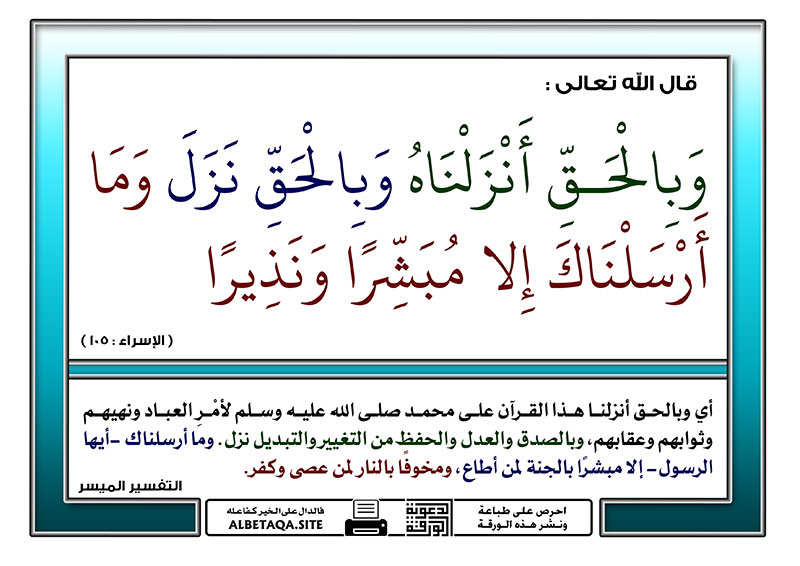 قال الله تعالى :
وَبِالْحَقِّ أَنْزَلْنَاهُ وَبِالْحَقِّ نَزَلَ وَمَا
أَرْسَلْنَاكَ إِلا مُبَشِّرًا وَنَذِيرًا
( الإسراء : ١٠٥ )
أي وبالحق أنزلنا هذا القرآن على محمد صلى الله عليه وسلم لأمْرِ العباد ونهيهم
وثوابهم وعقابهم، وبالصدق والعدل والحفظ من التغيير والتبديل نزل. وما أرسلناك -أيها
الرسول- إلا مبشرًا بالجنة لمن أطاع، ومخوفًا بالنار لمن عصى وكفر.
التفسير الميسر
احرص على طباعة
ونشر هذه الورقة
الدعوية
الورقة
فالدال على الخير كفاعله
ALBETAQA.SITE